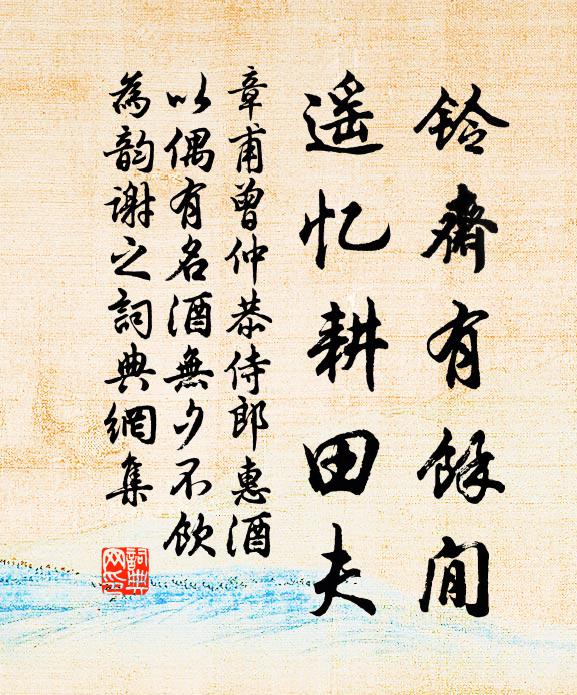 铃齋有餘閒
遥忆耕田夫
章甫曾仲恭侍郎惠酒
以偶有名酒無夕不飲
為韵谢之詞典網集
詞典网印